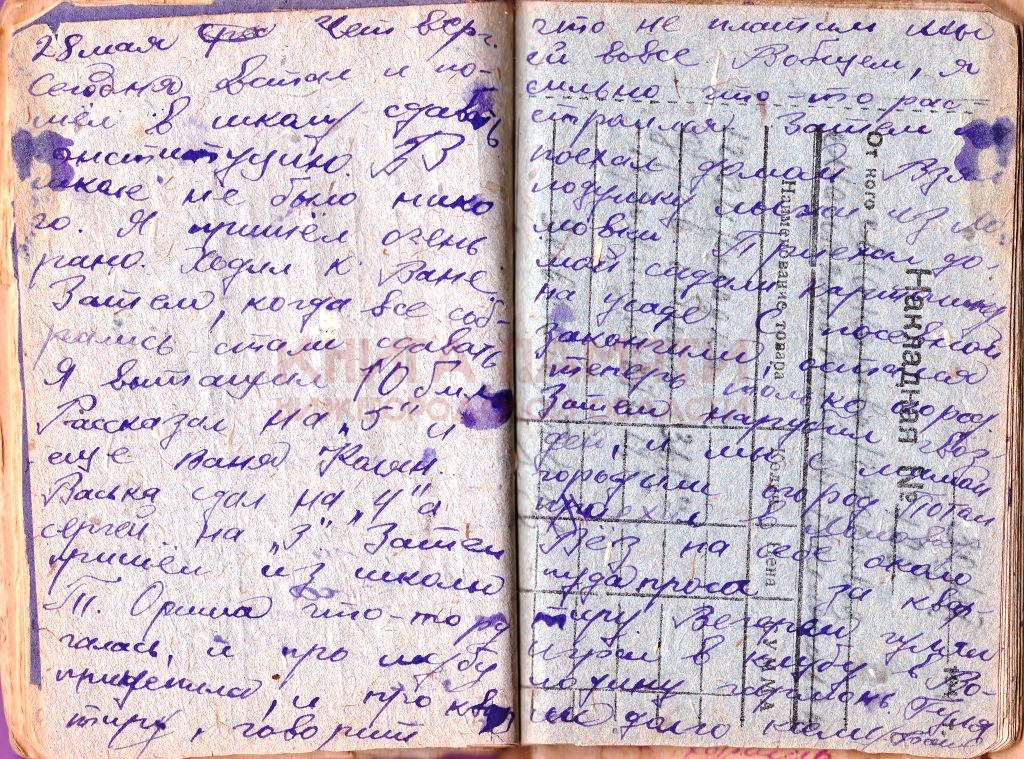 28 мая Четверг.
Сегодня встал и по-
шёл в школу сдавать
конституцию. В
школе не было нико
го. Я пришёл очень
рано. Ходил к Ване.
Затем, когда все соб-
рались стали сдавать
Я вытащил 10 бил
Рассказал на „5" и
еще Ваня
Васька сдал на „4" а
сергей на „3" Затем
пришёл из школы
Т. Ориша что-то ру
галась, и про шубу
прицепила, и про квар
тиру, говорит
что не платим мы
ей вовсе. Вобщем, я
сильно что-то рас-
строился Затем
поехал домой Взял
лодчинку
Приехал до-
мой сидали картошку
на усаде. С посевной
закончили, остался
теперь только огород
Затем нарубил гвоз-
дей, и мы с мамой
городили огород Потом
приехал в
Вёз на себе около
пуда проса за квар-
тиру. Вечером гулял
играл в клубе в Во-
лодину гармонь. Гуля
ли долго
От кого
Накладная №
Наименование товара
Колич.
Цена
СУММА
КНИГА ПАМЯТИ